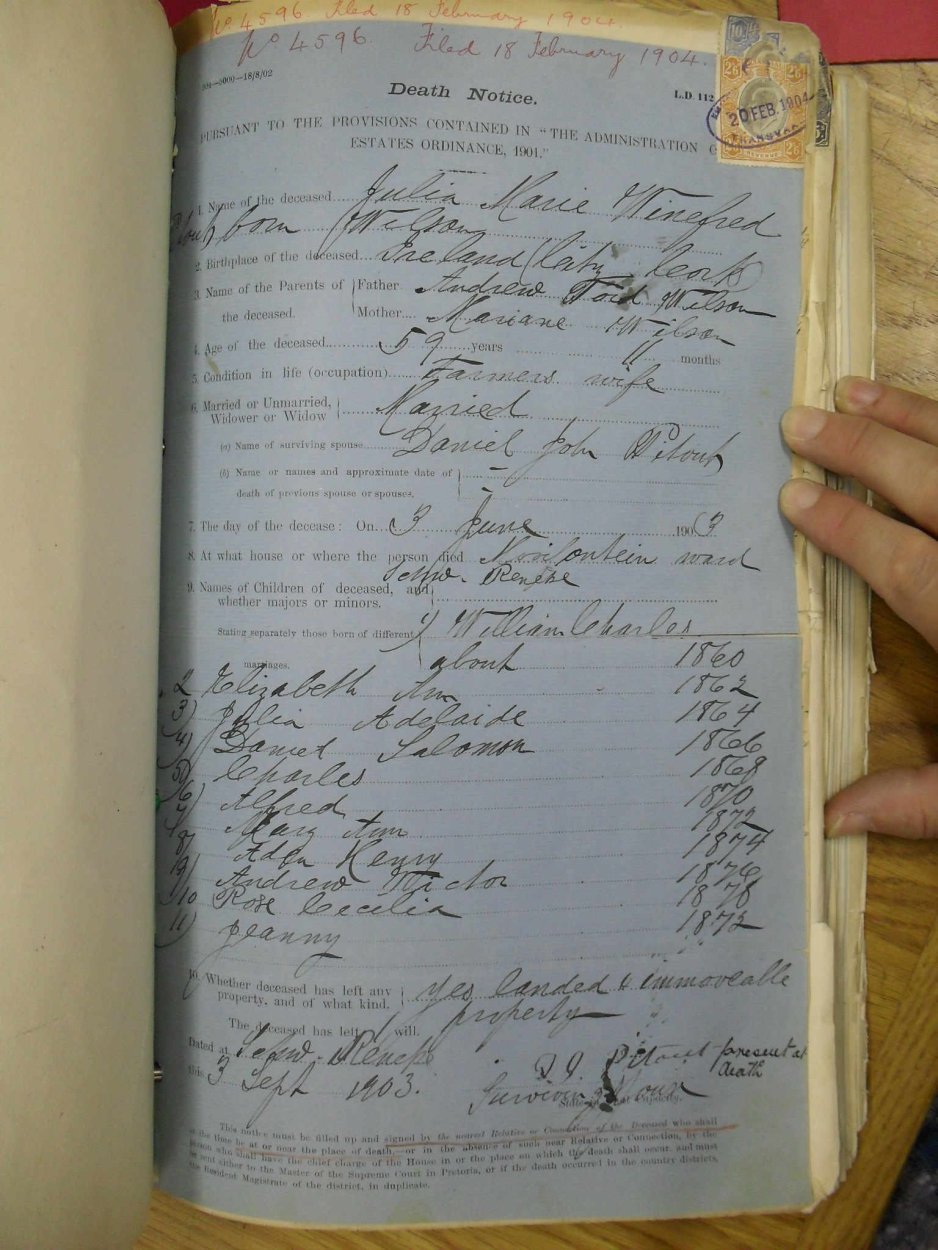 No 4596 Filed 18 February 1904.
No 4596. Filed 18 February 1904.
5000—18/8/02
Death Notice.
L.D. 112
2/6 2/6
20 FEB. 1904
TRANSVAAL
REVENUE
2/6 2/6
PURSUANT TO THE PROVISIONS CONTAINED IN "THE ADMINISTRATION
ESTATES ORDINANCE, 1901."
1. Name of the deceased Julia Marie Winefred
born (Wilson
2. Birthplace of the deceased Ireland (City Cork)
3. Name of the Parents of the deceased.
Father Andrew Wilson
Mother Mariane Wilson
4. Age of the deceased 59 years 11 months
5. Condition in life (occupation) Farmers wife
6. Married or Unmarried, Widower or Widow Married
(a) Name of surviving spouse Daniel John Pitout
(b) Name or names and approximate date of death of previous spouse or spouses. –
7. The day of the decease: On 3 June 1903
8. At what house or where the person died ward
Schw. Reneke
9. Names of Children of deceased, and whether majors or minors.
Stating separately those born of different marriages.
1) William Charles
about 1860
2 Elizabeth Ann 1862
3) Julia Adelaide 1864
4) Daniel Salomon 1866
5) Charles 1868
6) Alfred 1870
7) Mary Ann 1872
8) Henry 1874
9) Andrew Victor 1876
10 Rose Cecilia 1878
11) Jeanny 1872
10. Whether deceased has left any property, and of what kind. Yes landed & immoveable
property
The deceased has left will.
Dated at Schw. Reneke
this 3 Sept 1903.
D J Pitout present at death
Surviving Spouse
State in what Capacity.
This notice must be filled up and signed by the nearest Relative or Connection of the Deceased who shall
at the time be at or near the place of death,—or in the absence of such near Relative or Connection, by the
person who shall have the chief charge of the House in or the place on which the death shall occur, and must
be sent either to the Master of the Supreme Court in Pretoria, or if the death occurred in the country districts,
the Resident Magistrate of the district, in duplicate.